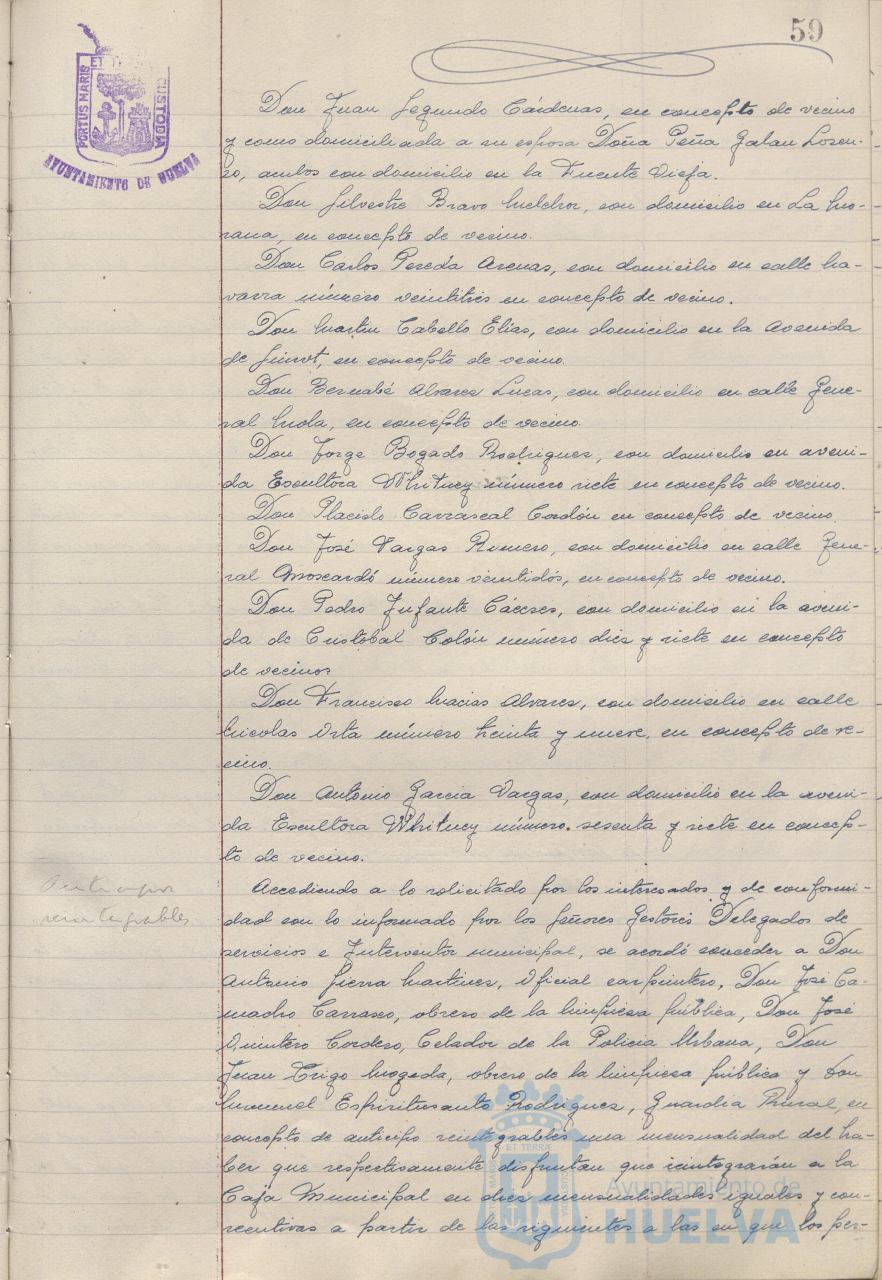 59
PORTUS MARIS
ET TERRAE
CUSTODIA
AYUNTAMIENTO DE HUELVA
Don Juan Segundo Cárdenas, en concepto de vecino
y como domiciliada a su esposa Doña Peña Galan Loren-
zo, ambos con domicilio en la Fuente Vieja.
Don Silvestre Bravo Melchor, con domicilio en La Mo-
rana, en concepto de vecino.
Don Carlos Pereda Arenas, con domicilio en calle Na-
varra número veintitres en concepto de vecino.
Don Martin Cabello Elias, con domicilio en la Avenida
de, en concepto de vecino.
Don Bernabé Alvarez Lucas, con domicilio en calle Gene-
ral Mola, en concepto de vecino.
Don Jorge Bogado Rodriguez, con domicilio en aveni-
da Escultora Whitney número siete en concepto de vecino.
Don Placido Carrascal Cordón en concepto de vecino.
Don José Vargas Romero, con domicilio en calle Gene-
ral Moscardó número veintidós, en concepto de vecino.
Don Pedro Infante Cáceres, con domicilio en la aveni-
da de Cristobal Colón número diez y siete en concepto
de vecinos
Don Francisco Macias Alvarez, con domicilio en calle
Nicolas Orta número treinta y nueve, en concepto de ve-
cino.
Don Antonio Garcia Vargas, con domicilio en la aveni-
da Escultora Whitney número sesenta y siete en concep-
to de vecino.
Anticipos
reintegrables
Accediendo a lo solicitado por los interesados y de conformi-
dad con lo informado por los Señores Gestores Delegados de
servicios e Interventor municipal, se acordó conceder a Don
Antonio Sierra Martinez, Oficial carpintero, Don José Ca-
macho Carrasco, obrero de la limpieza pública, Don José
Quintero Cordero, Celador de la Policia Urbana, Don
Juan Trigo, obrero de la limpieza pública y Don
Manuel Espiritusanto Rodriguez, Guardia Rural, en
concepto de anticipo reintegrables una mensualidad del ha-
ber que respectivamente disfrutan que reintegrarán a la
Caja Municipal en diez mensualidades iguales y con-
secutivas a partir de las siguientes a las en que los per-
Ayuntamiento de
HUELVA